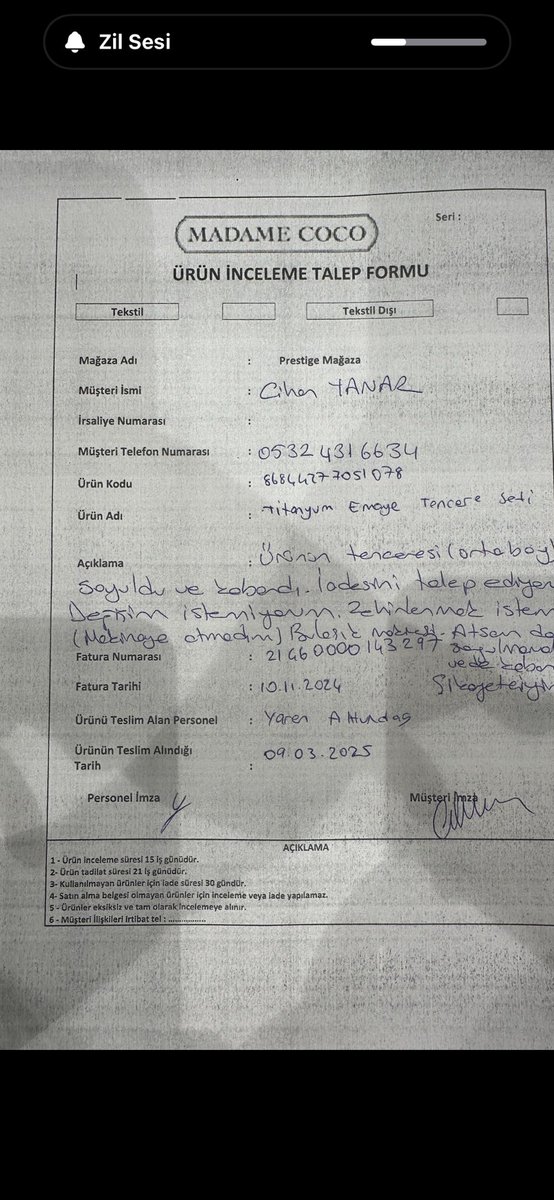 Zil Sesi
Seri :
MADAME COCO
ÜRÜN İNCELEME TALEP FORMU
Tekstil Tekstil Dışı
Mağaza Adı : Prestige Mağaza
Müşteri İsmi : Cihan YANAR
İrsaliye Numarası :
Müşteri Telefon Numarası : 0532 431 6634
Ürün Kodu : 86844277051078
Ürün Adı : Titanyum Emaye Tencere Seti
Açıklama : Ürünün tenceresi (orta boy)
Soyuldu ve kabardı. İadesini talep ediyor
Değişim istemiyorum. Zehirlenmek istem
(Makinaye atmadım) Bulaşık Atsam da
Fatura Numarası : 2146 0000 143 297
ve de kabar
Fatura Tarihi : 10.11.2024 Şikayetçiyim
Ürünü Teslim Alan Personel : Yaren Altundağ
Ürünün Teslim Alındığı
Tarih : 09.03.2025
Personel İmza Müşteri İmza
AÇIKLAMA
1 - Ürün inceleme süresi 15 iş günüdür.
2- Ürün tadilat süresi 21 iş günüdür.
3- Kullanılmayan ürünler için iade süresi 30 gündür.
4- Satın alma belgesi olmayan ürünler için inceleme veya iade yapılamaz.
5 - Ürünler eksiksiz ve tam olarak incelemeye alınır.
6 - Müşteri İlişkileri irtibat tel : ..................